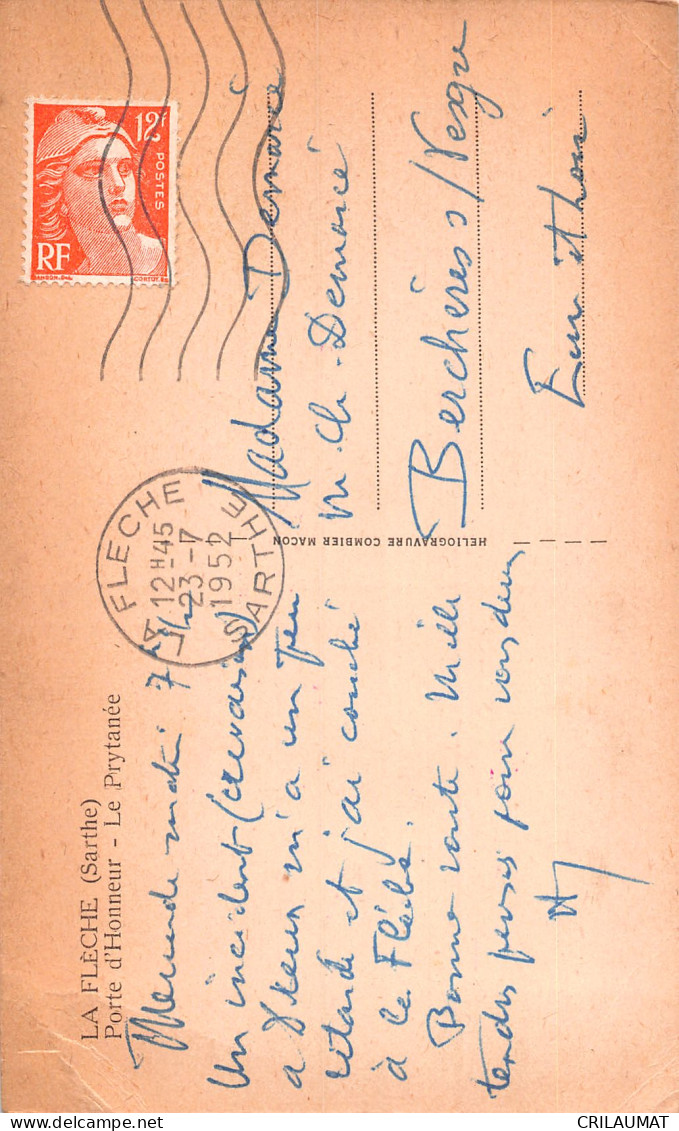 LA FLÈCHE (Sarthe)
Porte d'Honneur - Le Prytanée
Mercredi matin 7
Un incident (crevaison)
a Dreux m'a un peu
retardé et j'ai couché
à La Flèche.
Bonne route. Mille
tendres pensées pour vous deux
HELIOGRAVURE COMBIER MACON
12F
POSTES
RF
GANDON.DEL.
LA FLECHE
12H45
23-7
1952
SARTHE
Madame Demarié
M Ch. Demarié
Berchères s/Vesgre
Eure et Loir
CRILAUMAT